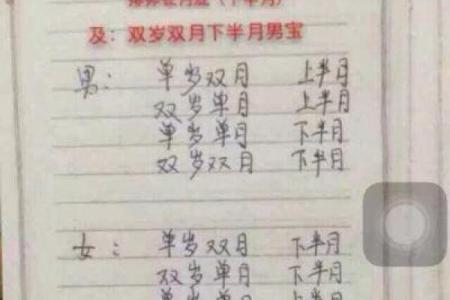 及：双岁双月下半月男宝
男： 单岁双月 上半月
双岁单月 上半月
单岁单月 下半月
双岁双月 下半月
女： 单岁双月 下半月
双岁单月 下半月